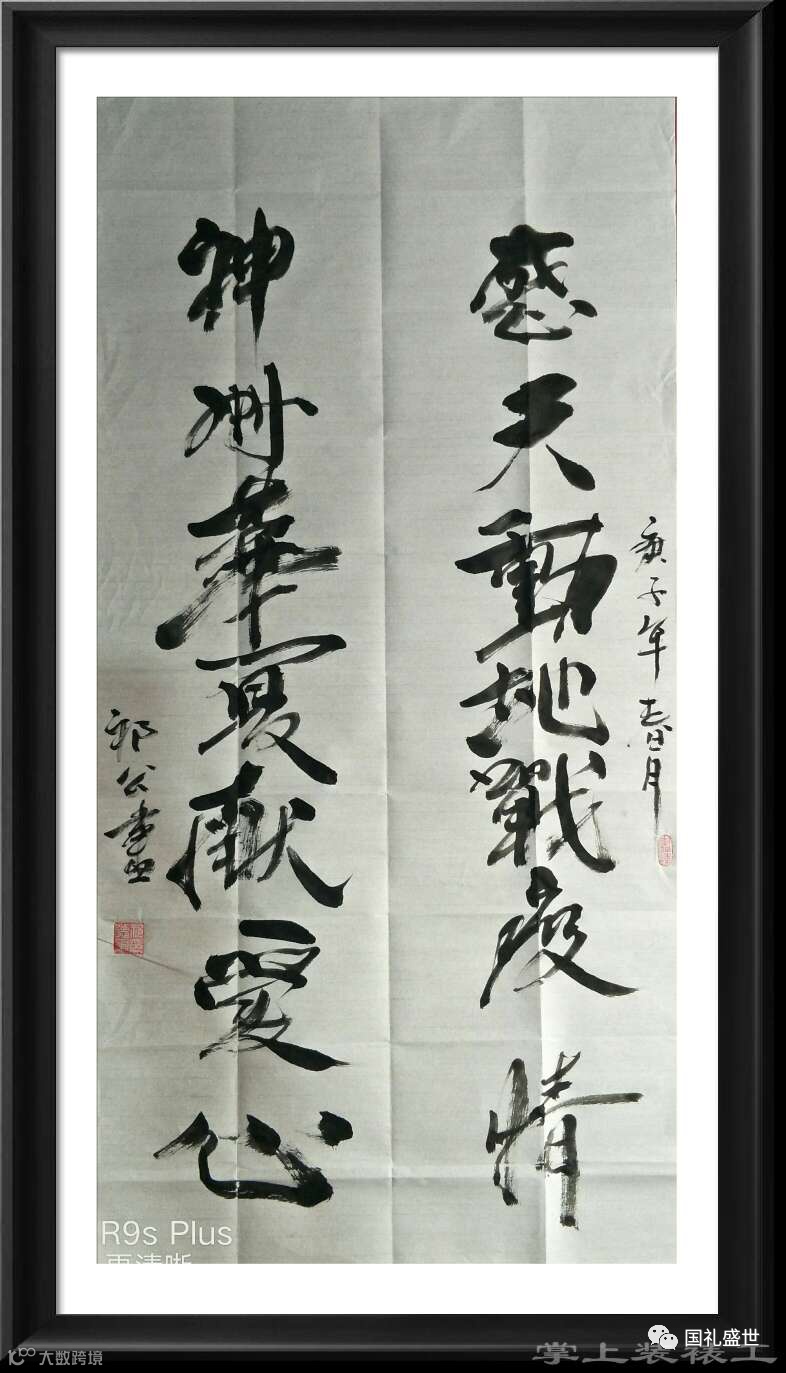 庚子年春月
感天動地戰疫情
神州華夏献愛心
郭公畫
R9s Plus
国礼盛世
大数跨境
掌上装裱工